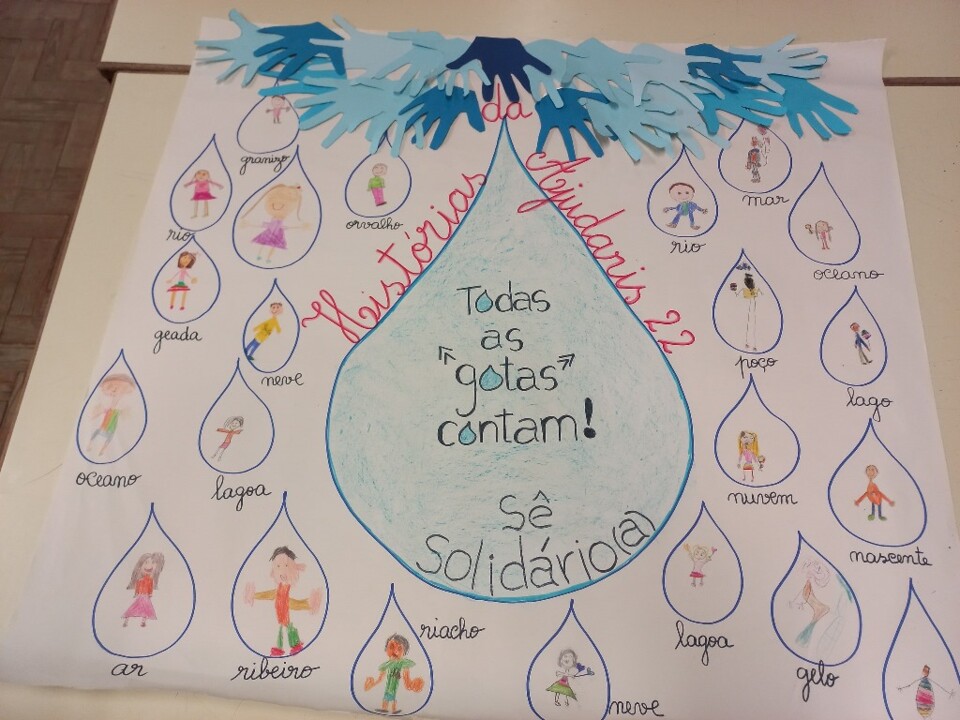 Histórias
da
Ajudaris 22
Todas
as
"gotas"
contam!
Sê
Solidário(a)
granizo
rio
orvalho
geada
neve
oceano
lagoa
ar
ribeiro
riacho
neve
mar
rio
oceano
poço
lago
nuvem
nascente
lagoa
gelo